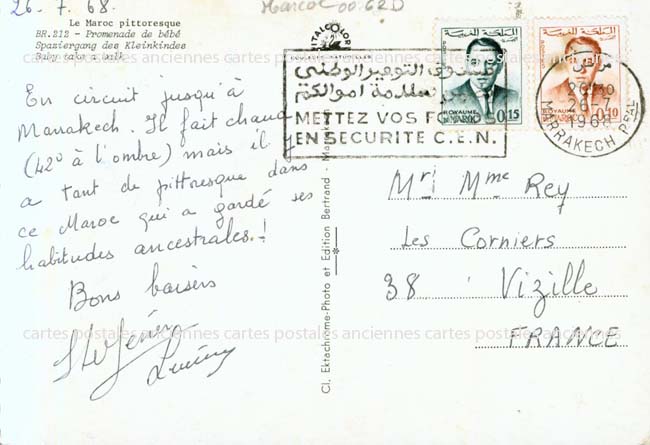 26.7.68.
Maroc 00.62D
Le Maroc pittoresque
BR.212 - Promenade de bébé
Spaziergang des Kleinkindes
Baby take a walk
ITALCOLOR
صندوق التوفير الوطني
سلامة اموالكم
METTEZ VOS FO
EN SECURITE C.E.N.
المملكة المغربية
ROYAUME DU MAROC
0.15
المملكة المغربية
ROYAUME DU MAROC
0.10
مراكش
26-7
1968
MARRAKECH PPAL
En circuit jusqu'à
Marrakech. Il fait chaud
(42° à l'ombre) mais il y
a tant de pittoresque dans
ce Maroc qui a gardé ses
habitudes ancestrales!
Bons baisers
Mr & Mme Rey
Les Corniers
38 Vizille
FRANCE
Cl. Ektachrome-Photo et Edition Bertrand - Marrakech
cartes postales anciennes cartes postales anciennes cartes postales anciennes
cartes postales anciennes cartes postales anciennes cartes postales anciennes